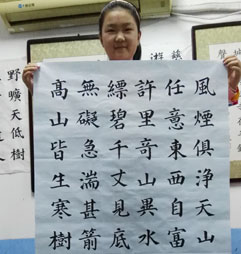 風煙俱浄天山
任意東西自富
許里竒山異水
縹碧千丈見底
無礙急湍甚箭
髙山皆生寒樹
野曠天低樹